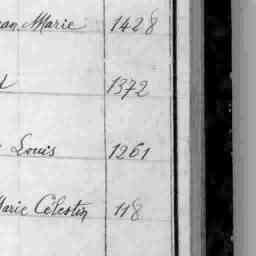 Marie 1428
1372
Louis 1261
Marie Célestin 118